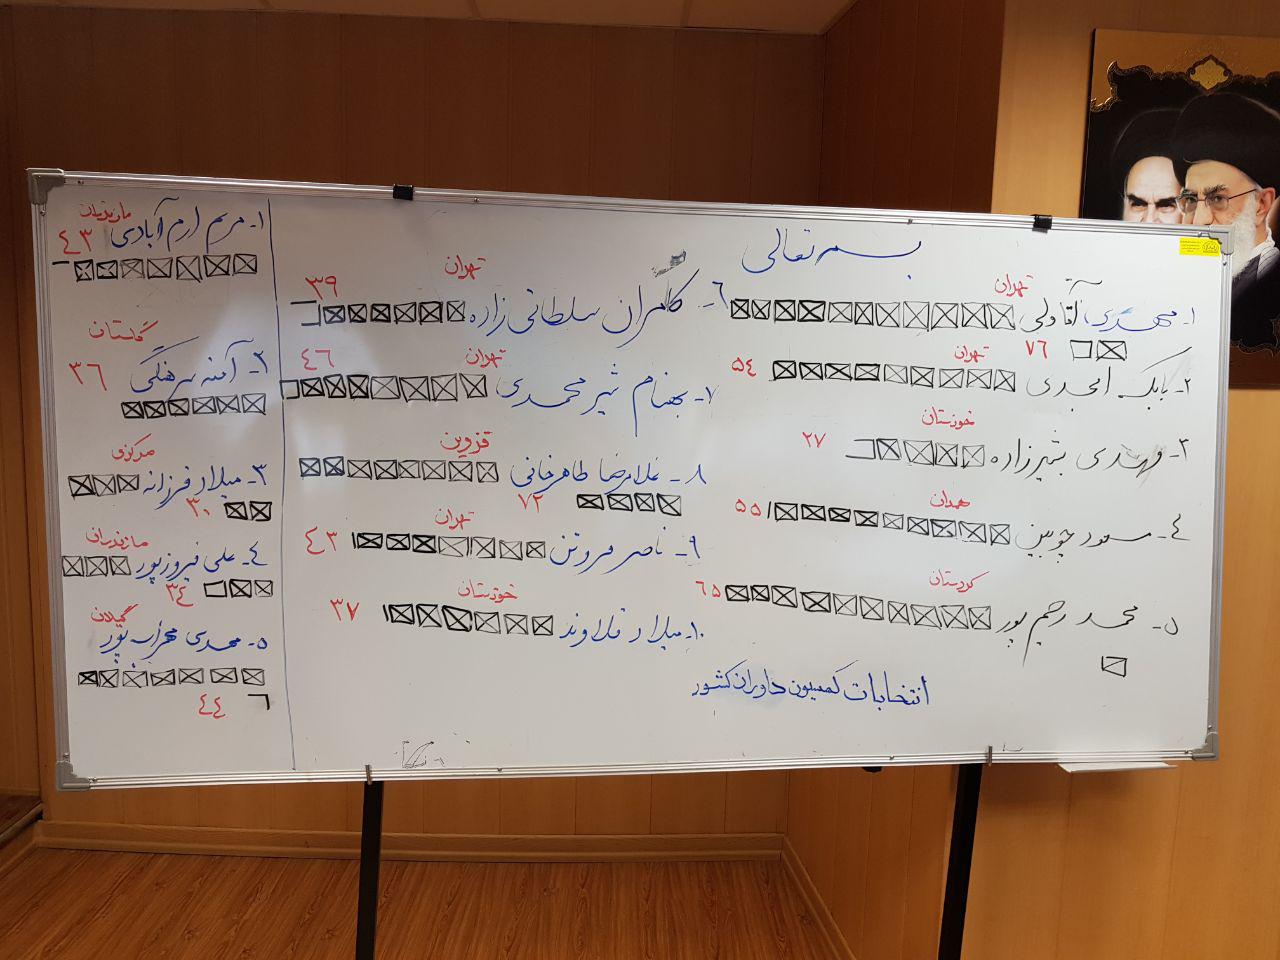 بسم تعالی
تهران
۱- مهدی آقاولی
۷۶
تهران
۲- بابک امجدی ۵۴
خوزستان
۳- مهدی بشیرزاده ۲۷
همدان
۴- مسعود چوبین ۵۵
کردستان
۵- محمد رحیم پور ۶۵
تهران
۶- کامران سلطانی زاده ۳۹
تهران
۷- بهنام شیرمحمدی ۴۶
قزوین
۸- غلامرضا طاهرخانی
۷۲
تهران
۹- ناصر فروتن ۴۳
خوزستان
۱۰- میلاد قلاوند ۳۷
انتخابات کمیسیون داوران کشور
مازندران
۱- مریم ارم آبادی ۴۳
گلستان
۲- آمنه سرهنگی ۳۶
مرکزی
۳- میلاد فرزانه
۳۰
مازندران
۴- علی فیروزپور
۳۴
گیلان
۵- مهدی محراب پور
۴۴